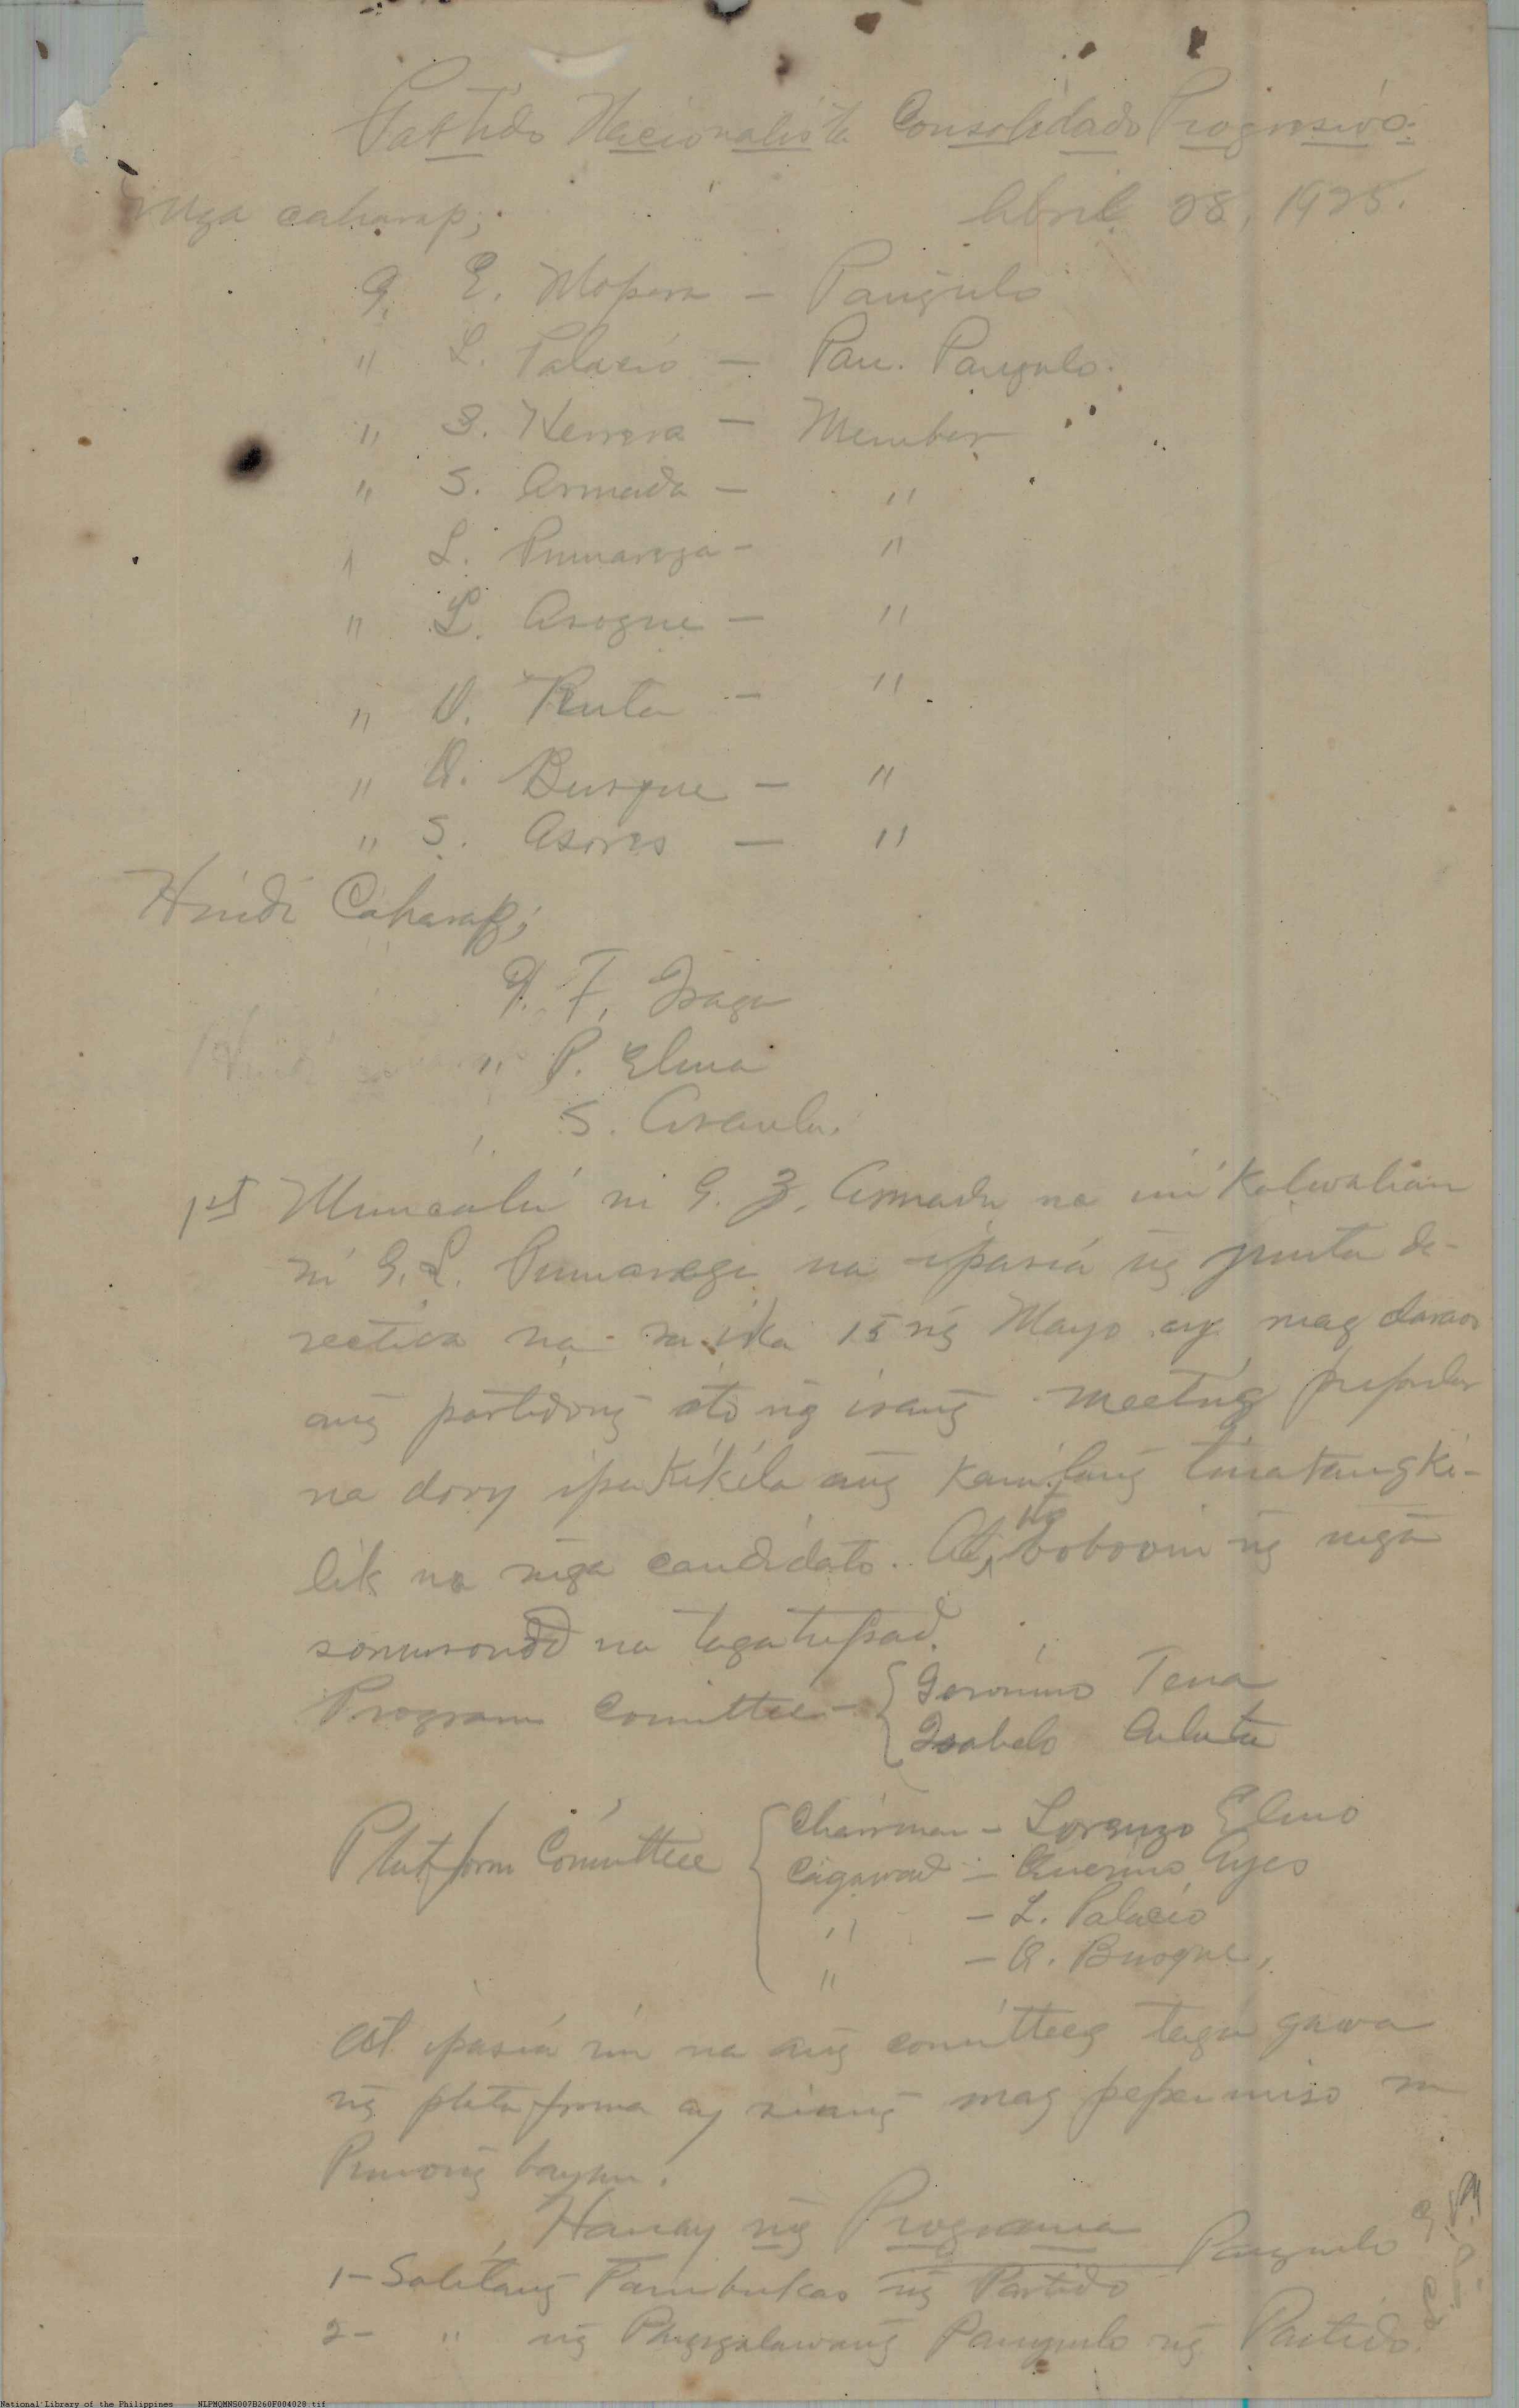 Partido Nacionalista Consolidado Progresivo.
Abril 28, 1925.
Mga caharap;
G. E. Mopera - Pangulo
" L. Palacio - Pan. Pangulo.
" Z. Herrera - Member
" S. Armada - "
" L. Pumarega - "
" L. Arogue - "
" V. Ruta - "
" Q. Busque - "
" S. Asores - "
Hindi Caharap;
G. F. Isaga
" P. Elma
S. Araula.
1st Munacala ni G. Z. Armada na
ni G. L. Pumarega na ipasia ng junta de-
rectiva na sa ika 15 ng Mayo ay mag daraos
ang partidong ito ng isang meeting popular
na dory ipakikila ang kanilang tinatangki-
lik na mga candidato. At, ito bobooin ng mga
somusonod na tagatupad.
Program Comittee - Geronimo Tena
Isabelo Aluta
Platform Comittee Chairman - Lorenzo Elmo
Cagawad - Querino Ayes
" - L. Palacio
" - Q. Busque,
At ipasia rin na ang comitteeg taga gawa
ng plata forma ay siang mag pepermiso sa
Punong bayan.
Hanay ng Programa
1- Salitang Pambukas ng Partido Pangulo
2- " ng Pangalawang Pangulo ng Partido.
National Library of the Philippines NLPMQMNS007B260F004028.tif